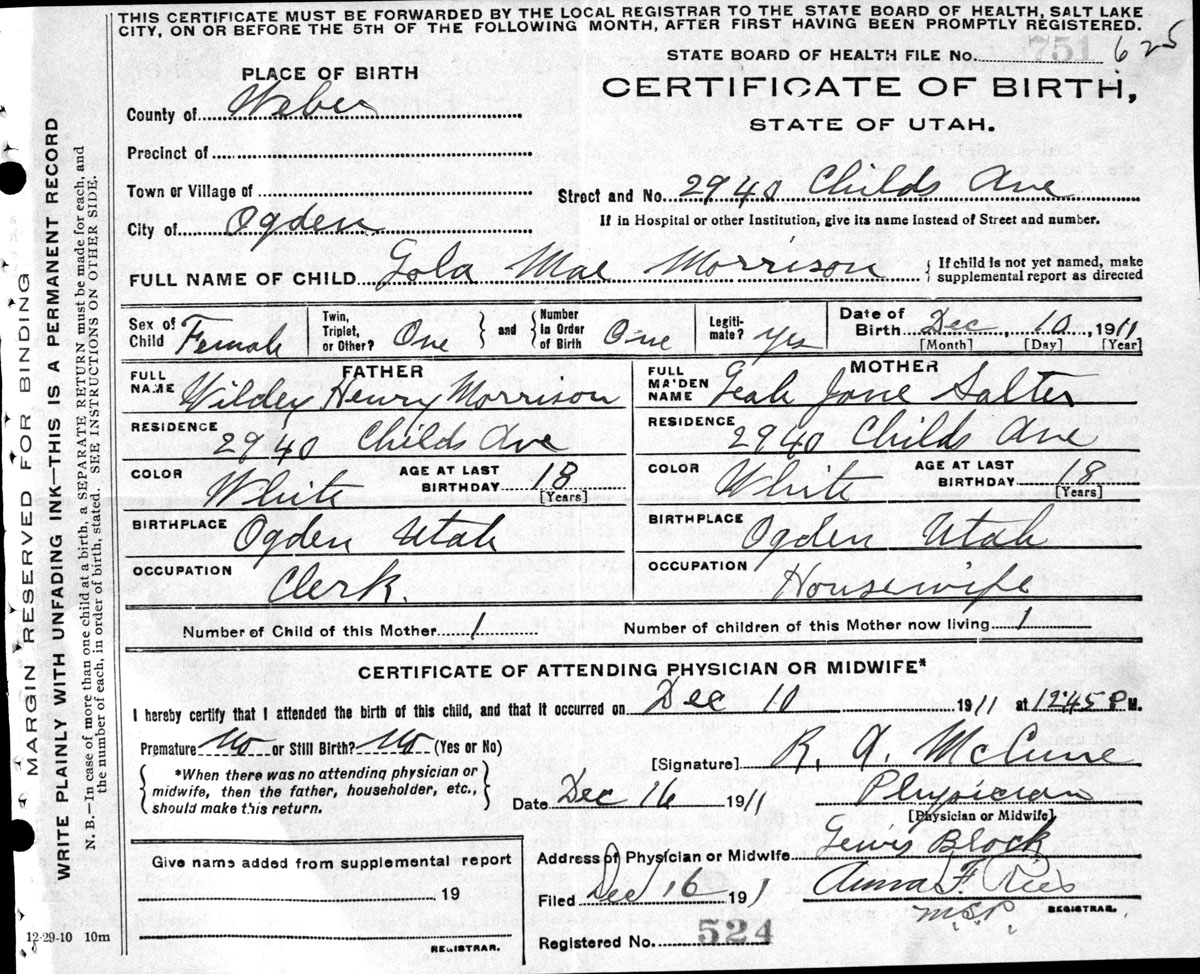 THIS CERTIFICATE MUST BE FORWARDED BY THE LOCAL REGISTRAR TO THE STATE BOARD OF HEALTH, SALT LAKE
CITY, ON OR BEFORE THE 5TH OF THE FOLLOWING MONTH, AFTER FIRST HAVING BEEN PROMPTLY REGISTERED.
STATE BOARD OF HEALTH FILE No. 751 625
PLACE OF BIRTH
CERTIFICATE OF BIRTH,
STATE OF UTAH.
County of Weber
Precinct of
Town or Village of
Street and No. 2940 Childs Ave
City of Ogden
If in Hospital or other Institution, give its name instead of Street and number.
FULL NAME OF CHILD Lola Mae Morrison
If child is not yet named, make
supplemental report as directed
Sex of Child Female
Twin, Triplet, or Other? One
and
Number in Order of Birth One
Legiti-mate? Yes
Date of Birth Dec 10, 1911
[Month] [Day] [Year]
FATHER
FULL NAME Wildey Henry Morrison
MOTHER
FULL MAIDEN NAME Leah Jane Salter
RESIDENCE 2940 Childs Ave
RESIDENCE 2940 Childs Ave
COLOR White
AGE AT LAST BIRTHDAY 18 [Years]
COLOR White
AGE AT LAST BIRTHDAY 18 [Years]
BIRTHPLACE Ogden Utah
BIRTHPLACE Ogden Utah
OCCUPATION Clerk.
OCCUPATION Housewife
Number of Child of this Mother 1
Number of children of this Mother now living 1
CERTIFICATE OF ATTENDING PHYSICIAN OR MIDWIFE*
I hereby certify that I attended the birth of this child, and that it occurred on Dec 10 1911 at 12:45 P M.
Premature No or Still Birth? No (Yes or No)
[Signature] R. A. McCune
*When there was no attending physician or
midwife, then the father, householder, etc.,
should make this return.
Date Dec 16 1911
Physician
[Physician or Midwife]
Give name added from supplemental report
19
REGISTRAR.
Address of Physician or Midwife Lewis Block
Filed Dec 16 1911
Anna F. Rees
M.S.P.
REGISTRAR.
Registered No. 524
12-29-10 10m
MARGIN RESERVED FOR BINDING
WRITE PLAINLY WITH UNFADING INK—THIS IS A PERMANENT RECORD
N. B.—In case of more than one child at a birth, a SEPARATE RETURN must be made for each, and
the number of each, in order of birth, stated. SEE INSTRUCTIONS ON OTHER SIDE.